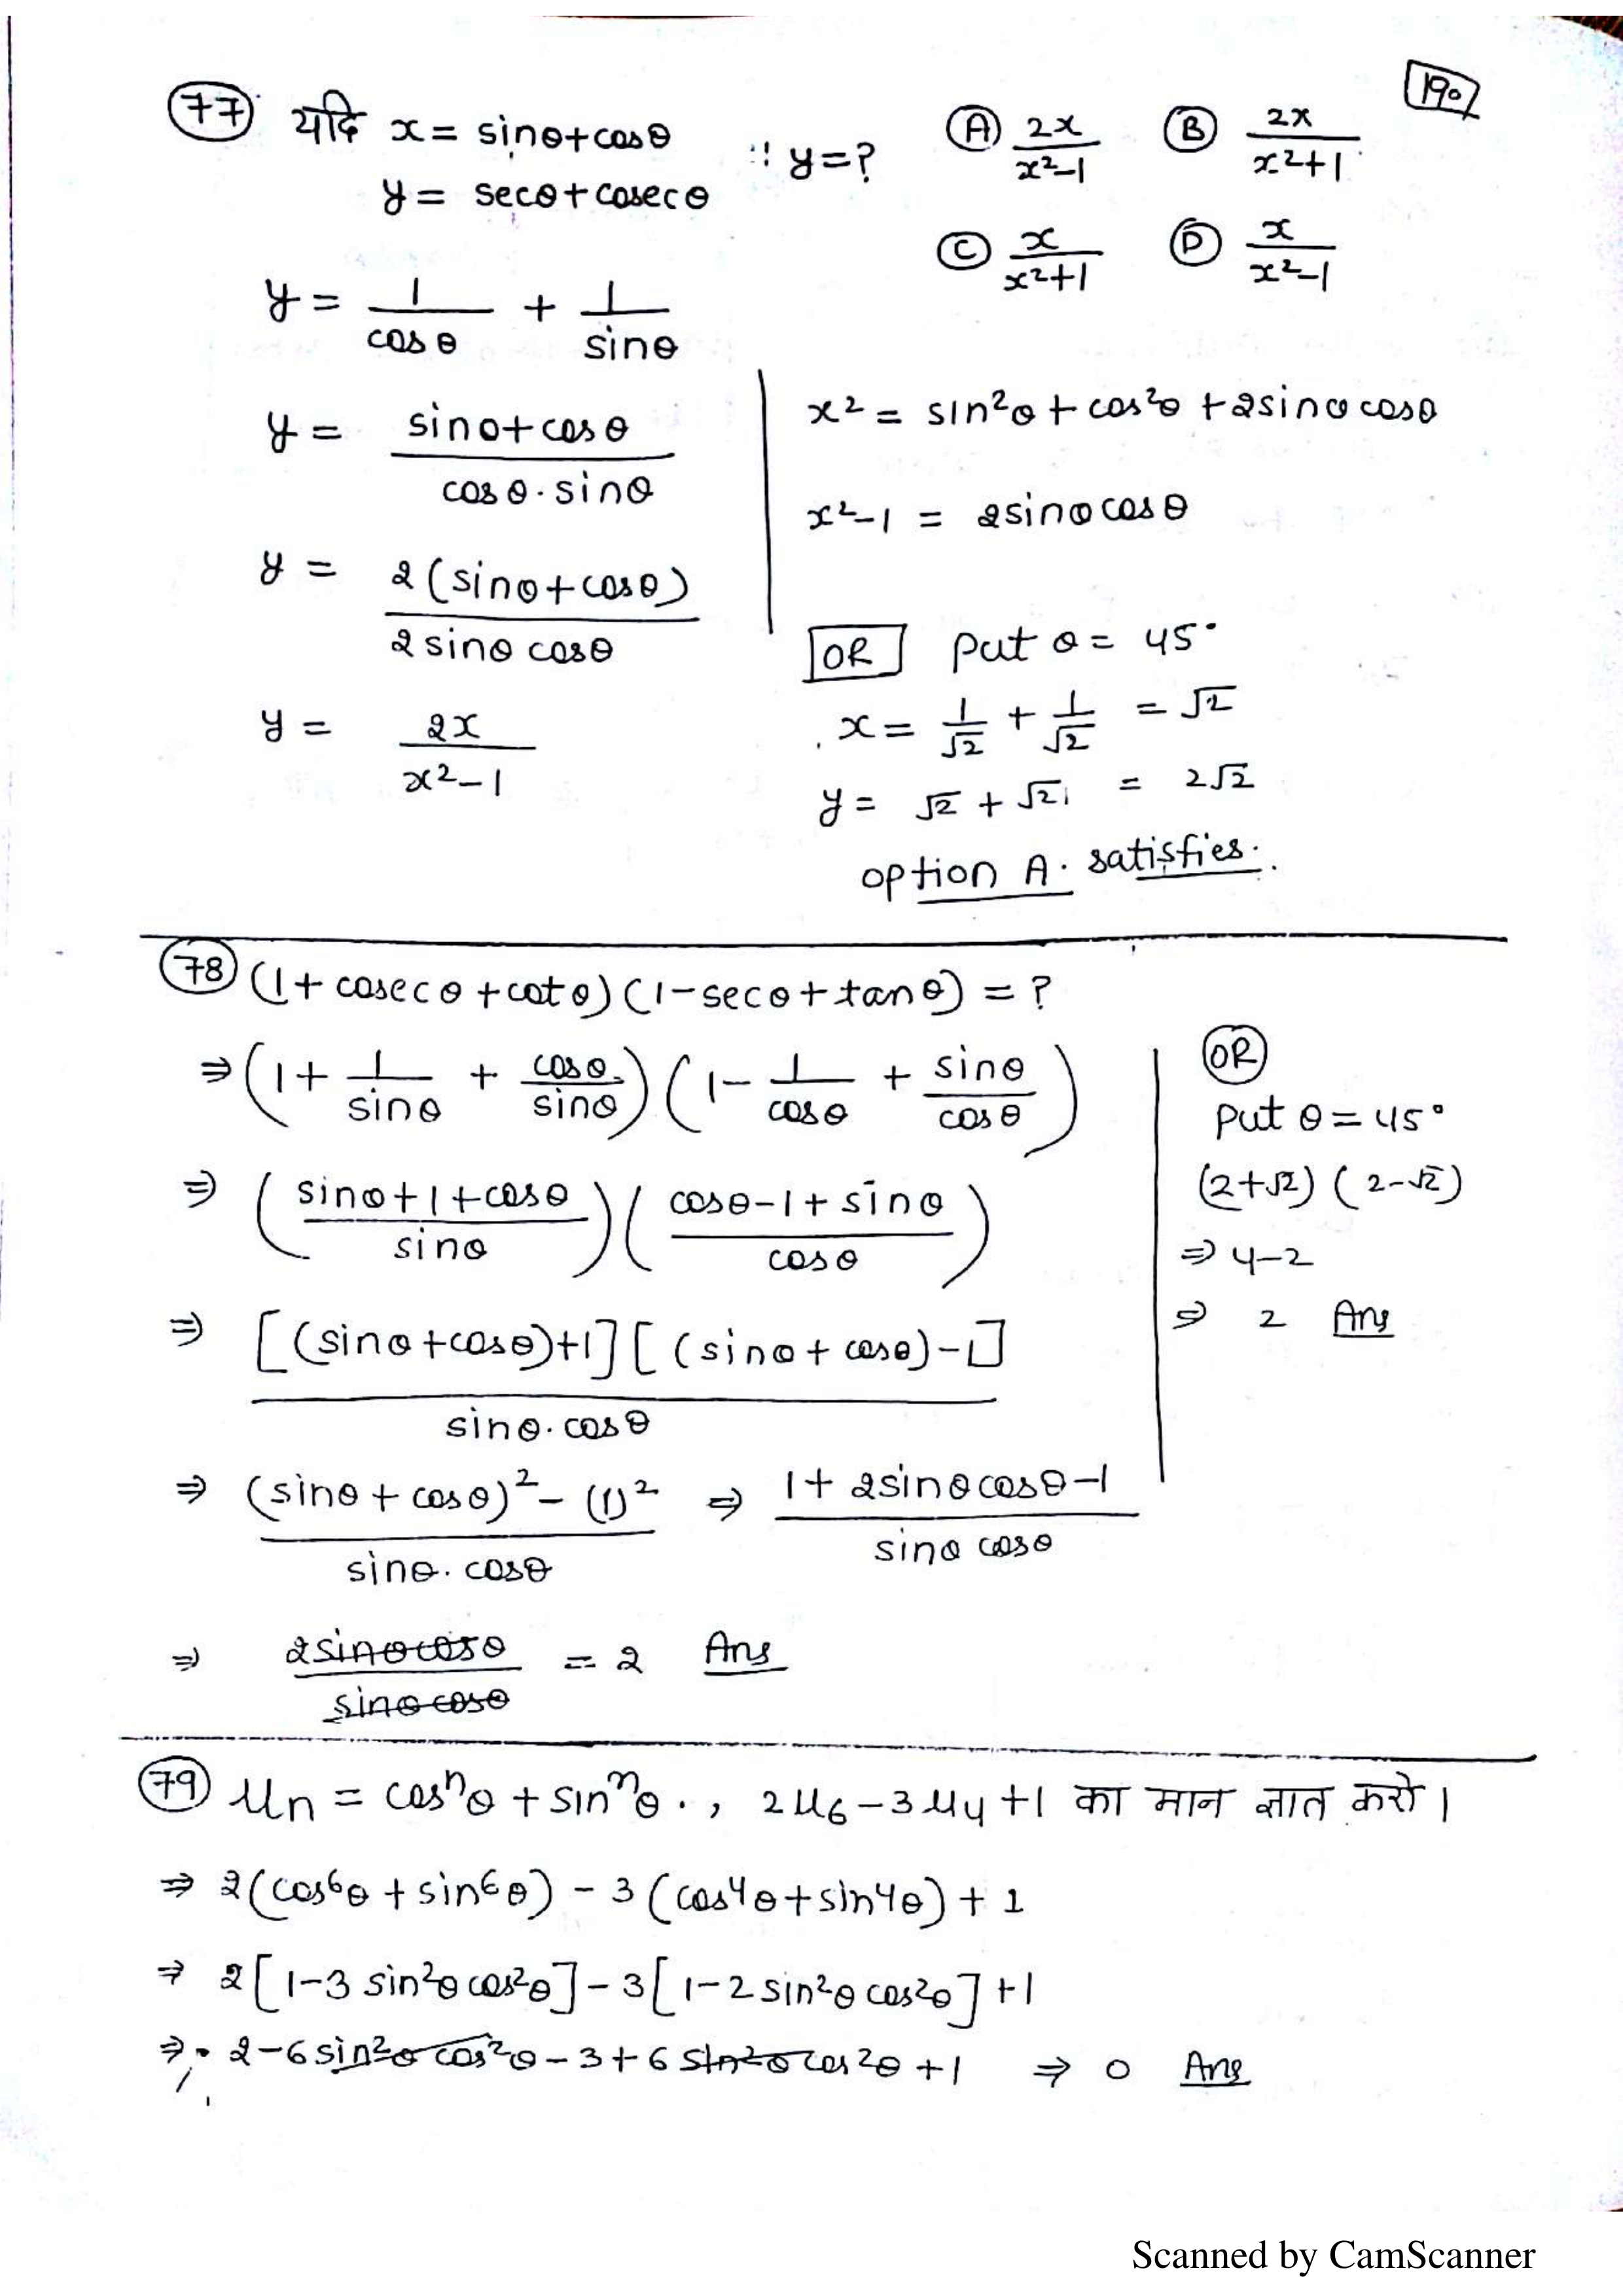 190
77 यदि x = sinθ+cosθ
y = secθ+cosecθ
∴ y=?
A 2x/(x²-1) B 2x/(x²+1)
C x/(x²+1) D x/(x²-1)
y = 1/cosθ + 1/sinθ
y = (sinθ+cosθ)/(cosθ·sinθ)
y = 2(sinθ+cosθ)/(2sinθ cosθ)
y = 2x/(x²-1)
x² = sin²θ + cos²θ + 2sinθ cosθ
x²-1 = 2sinθ cosθ
OR Put θ = 45°
x = 1/√2 + 1/√2 = √2
y = √2 + √2 = 2√2
option A. satisfies.
78 (1+cosecθ+cotθ)(1-secθ+tanθ) = ?
⇒ (1 + 1/sinθ + cosθ/sinθ)(1 - 1/cosθ + sinθ/cosθ)
⇒ ((sinθ+1+cosθ)/sinθ)((cosθ-1+sinθ)/cosθ)
⇒ [(sinθ+cosθ)+1][(sinθ+cosθ)-1]/(sinθ·cosθ)
⇒ ((sinθ+cosθ)²-(1)²)/(sinθ·cosθ) ⇒ (1+2sinθcosθ-1)/(sinθ cosθ)
⇒ 2sinθcosθ/sinθcosθ = 2 Ans
OR
Put θ = 45°
(2+√2)(2-√2)
⇒ 4-2
⇒ 2 Ans
79 μn = cosⁿθ + sinⁿθ., 2μ₆-3μ₄+1 का मान ज्ञात करो।
⇒ 2(cos⁶θ + sin⁶θ) - 3(cos⁴θ+sin⁴θ) + 1
⇒ 2[1-3 sin²θ cos²θ] - 3[1-2 sin²θ cos²θ] +1
⇒ 2-6 sin²θ cos²θ-3+6 sin²θ cos²θ +1 ⇒ 0 Ans
Scanned by CamScanner